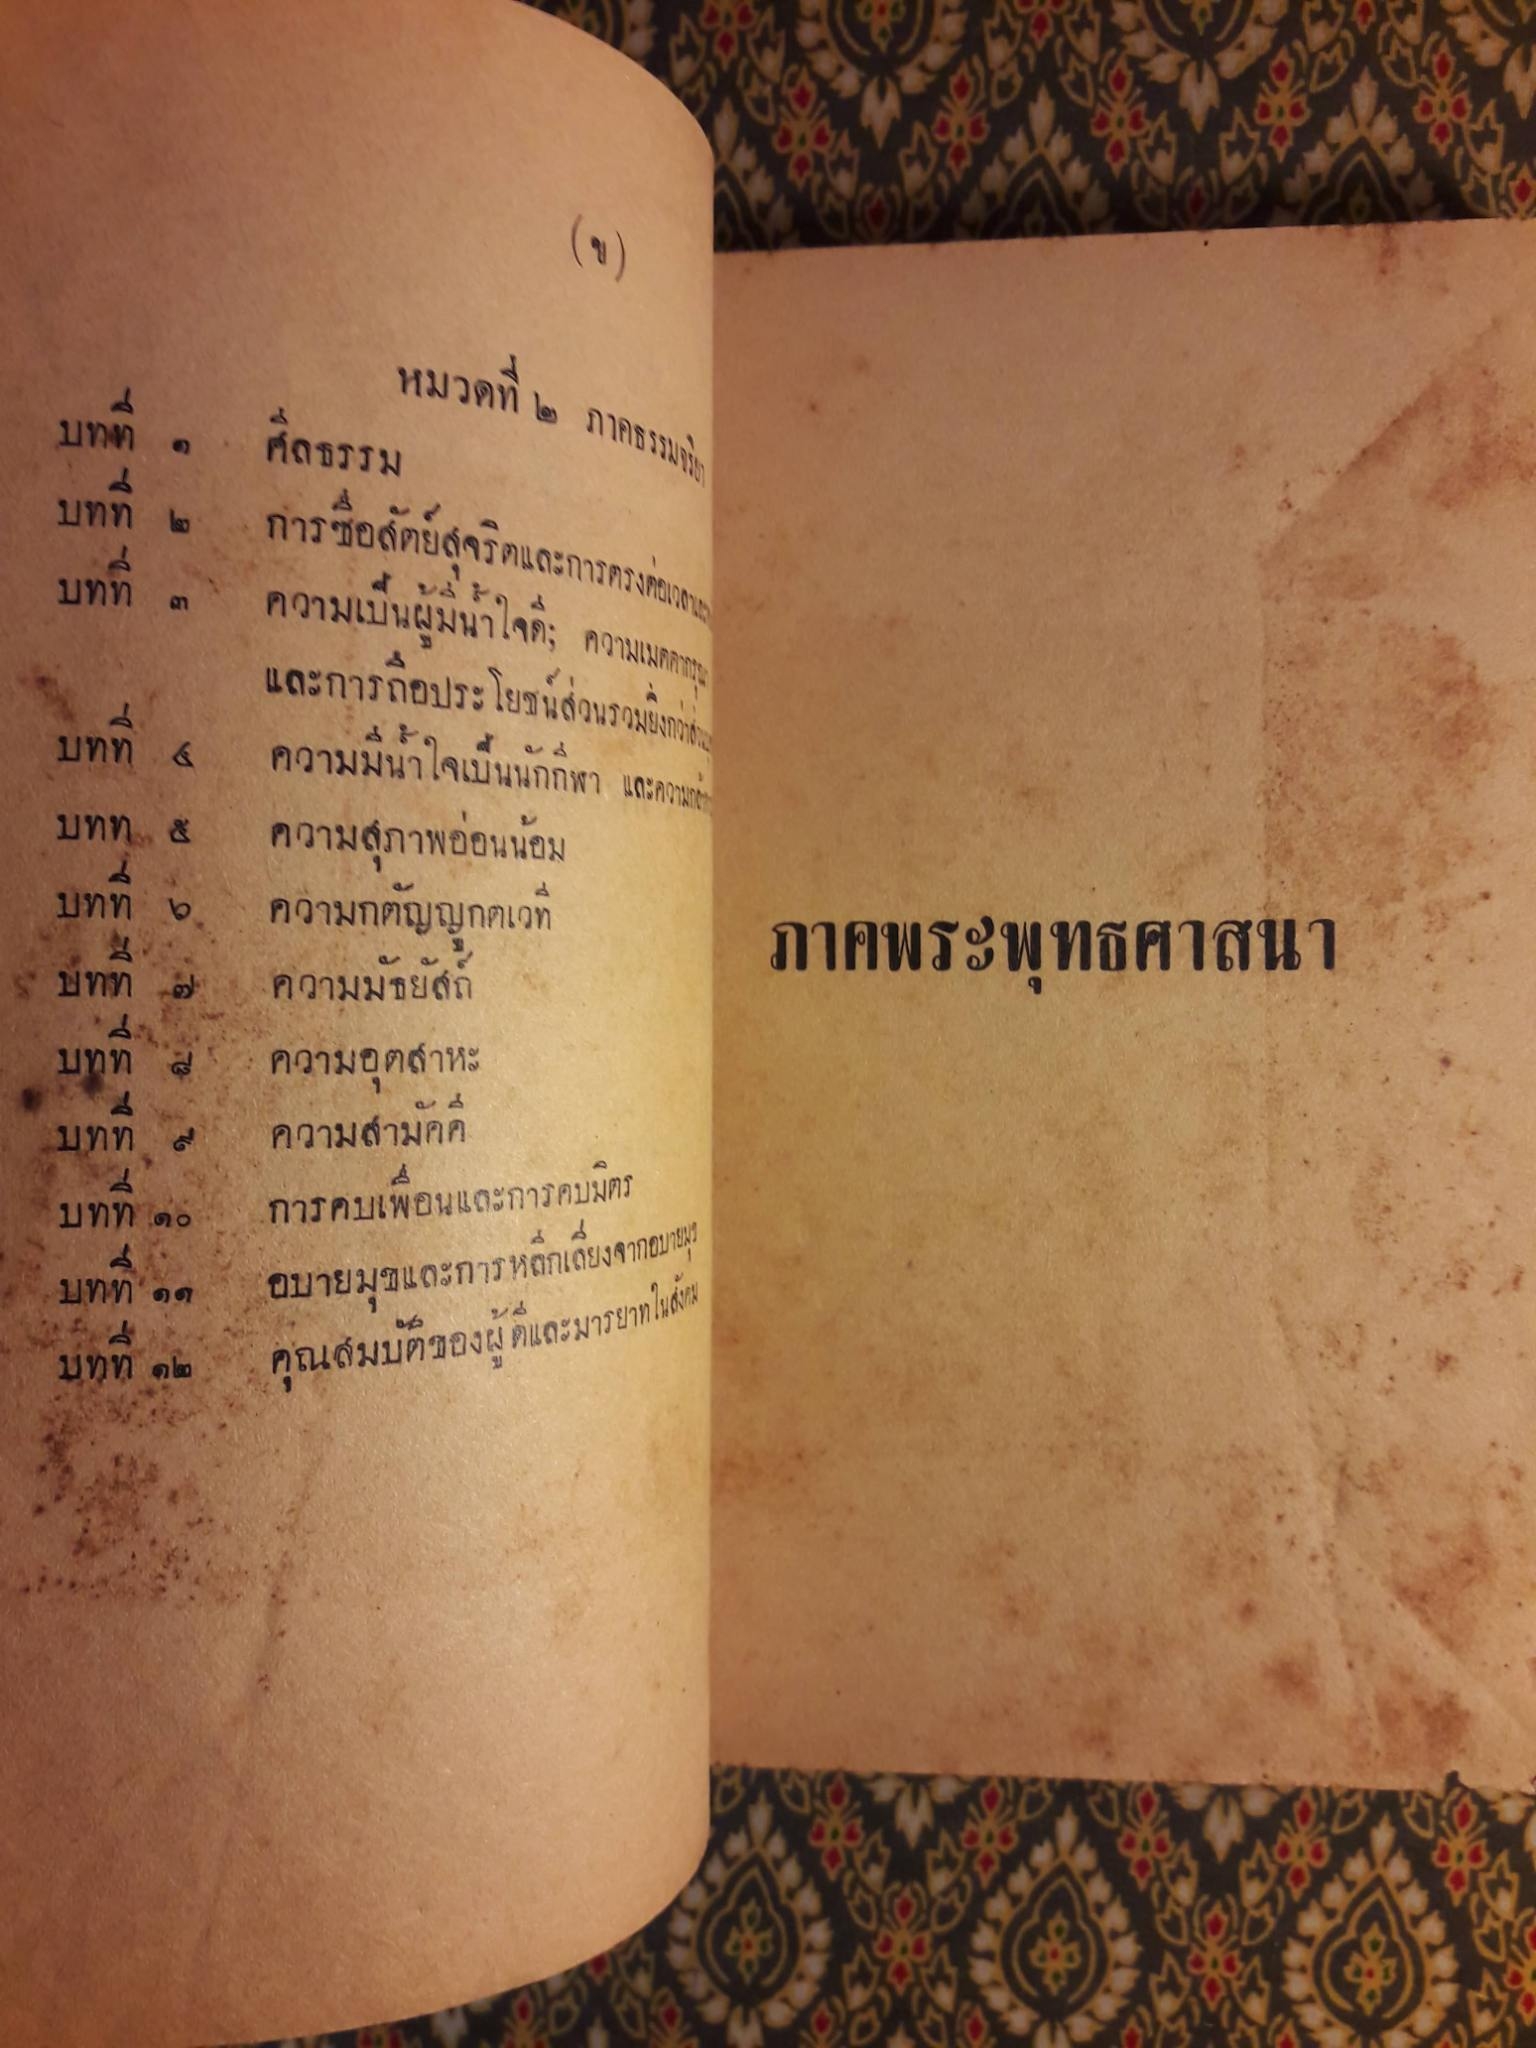 (ข)
หมวดที่ ๒ ภาคธรรมจริยา
บทที่ ๑ ศีลธรรม
บทที่ ๒ การซื่อสัตย์สุจริตและการตรงต่อเวลาและ
บทที่ ๓ ความเป็นผู้มีน้ำใจดี; ความเมตตากรุณา
และการถือประโยชน์ส่วนรวมยิ่งกว่าส่วน
บทที่ ๔ ความมีน้ำใจเป็นนักกีฬา และความกล้า
บทที่ ๕ ความสุภาพอ่อนน้อม
บทที่ ๖ ความกตัญญูกตเวที
บทที่ ๗ ความมัธยัสถ์
บทที่ ๘ ความอุตสาหะ
บทที่ ๙ ความสามัคคี
บทที่ ๑๐ การคบเพื่อนและการคบมิตร
บทที่ ๑๑ อบายมุขและการหลีกเลี่ยงจากอบายมุข
บทที่ ๑๒ คุณสมบัติของผู้ดีและมารยาทในสังคม
ภาคพระพุทธศาสนา